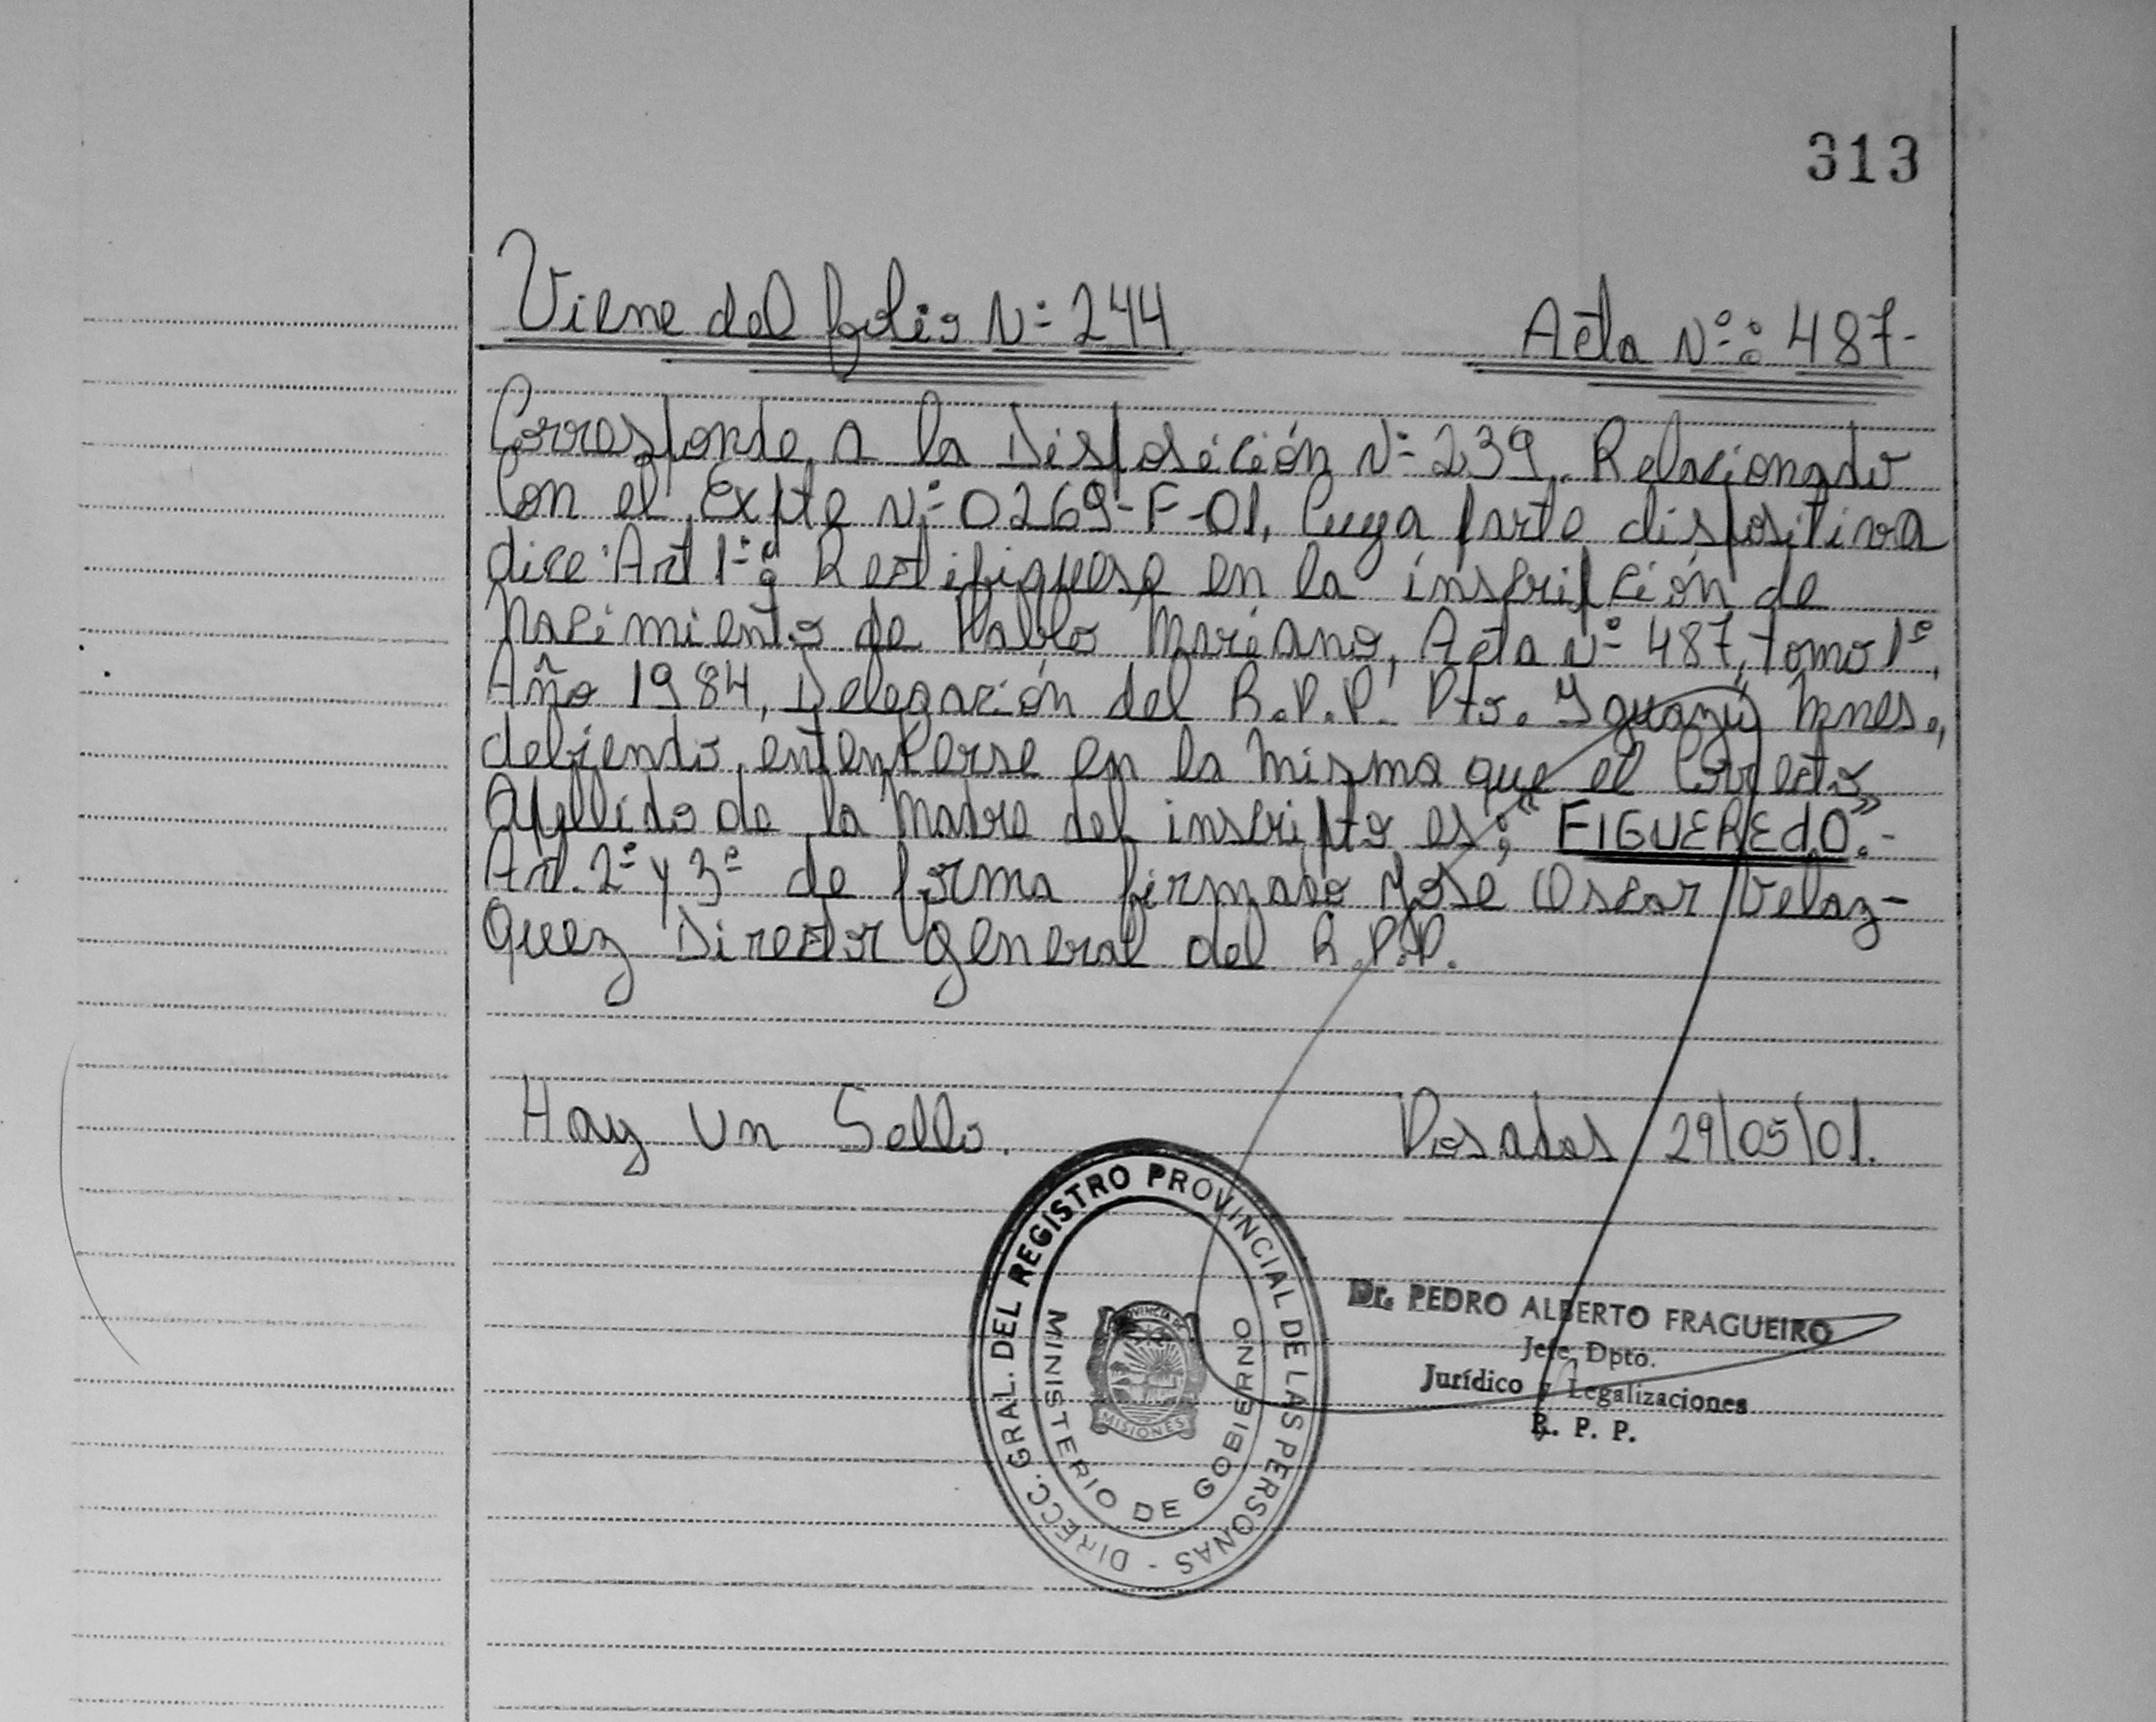 313
Viene del folio Nº 244 Acta Nº: 487-
Corresponde a la Disposición Nº 239. Relacionado
Con el Expte Nº 0269-F-01, Cuya parte dispositiva
dice: Art 1º: Rectifiquese en la inscripción de
Nacimiento de Pablo Mariano, Acta Nº 487, tomo 1º,
Año 1984, Delegación del R.P.P. Pto. Iguazú, Mnes.,
debiendo entenderse en la misma que el Correcto
Apellido de la Madre del inscripto es; "FIGUEREdO".-
Art. 2º y 3º de forma firmado José Oscar Velaz-
quez Director General del R.P.P.
Hay Un Sello. Posadas 29/05/01.
DIRECC. GRAL. DEL REGISTRO PROVINCIAL DE LAS PERSONAS -
MINISTERIO DE GOBIERNO
PROVINCIA DE
MISIONES
Dr. PEDRO ALBERTO FRAGUEIRO
Jefe Dpto.
Jurídico y Legalizaciones
R. P. P.